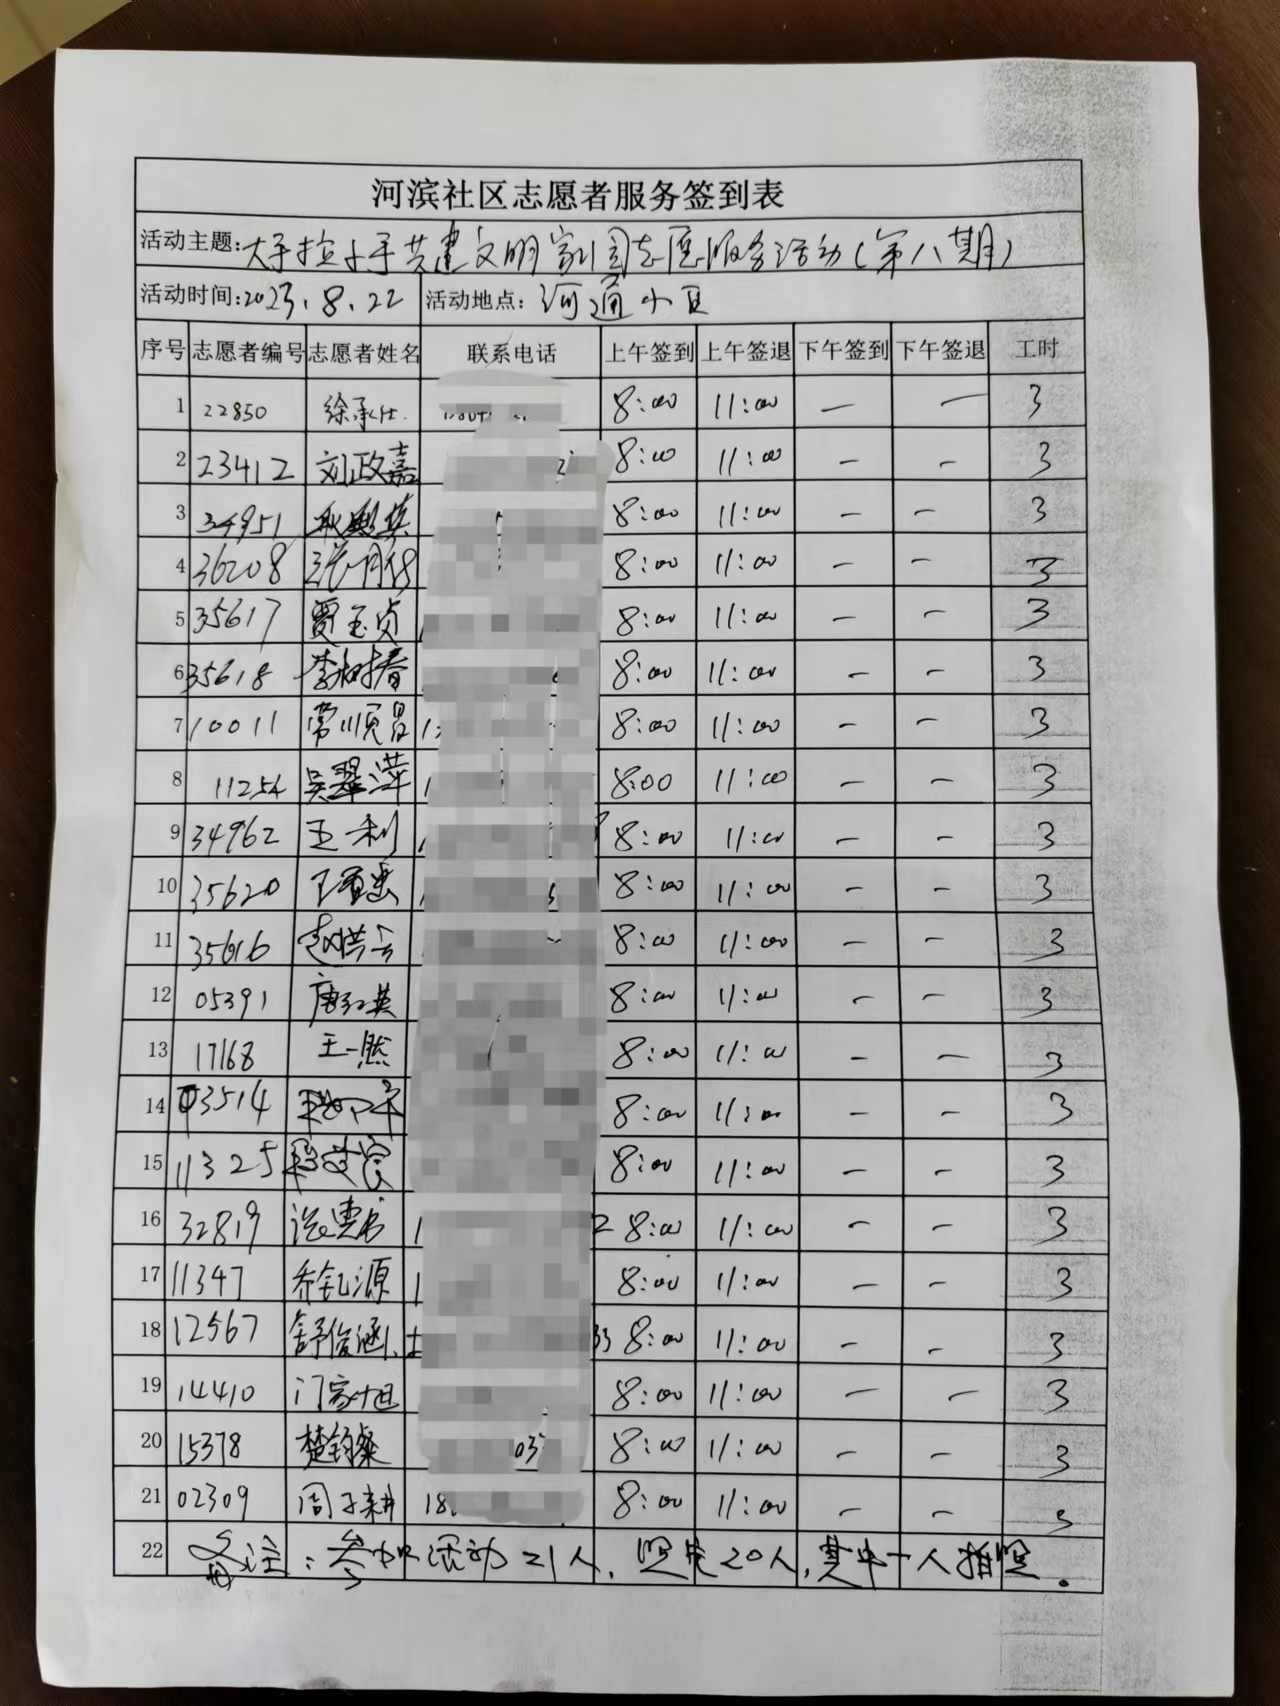 河滨社区志愿者服务签到表
活动主题:大手拉小手共建文明家园志愿服务活动(第八期)
活动时间:2023.8.22 活动地点: 河通小区
序号 志愿者编号 志愿者姓名 联系电话 上午签到 上午签退 下午签到 下午签退 工时
1 22850 徐承仕. 8:00 11:00 — — 3
2 23412 刘政嘉 8:00 11:00 — — 3
3 34951 8:00 11:00 — — 3
4 36208 8:00 11:00 — — 3
5 35617 贾玉贞 8:00 11:00 — — 3
6 35618 李树春 8:00 11:00 — — 3
7 10011 常顺昌 8:00 11:00 — — 3
8 11254 吴翠萍 8:00 11:00 — — 3
9 34962 王利 8:00 11:00 — — 3
10 35620 8:00 11:00 — — 3
11 35616 赵洪云 8:00 11:00 — — 3
12 05391 唐红英 8:00 11:00 — — 3
13 17168 王一然 8:00 11:00 — — 3
14 03514 8:00 11:00 — — 3
15 11325 8:00 11:00 — — 3
16 32819 8:00 11:00 — — 3
17 11347 乔钇源 8:00 11:00 — — 3
18 12567 舒俊涵 33 8:00 11:00 — — 3
19 14410 门家旭 8:00 11:00 — — 3
20 15378 楚钧燊 037 8:00 11:00 — — 3
21 02309 周子耕 18 8:00 11:00 — — 3
22 备注:参加活动21人,照片20人,其中一人拍照.